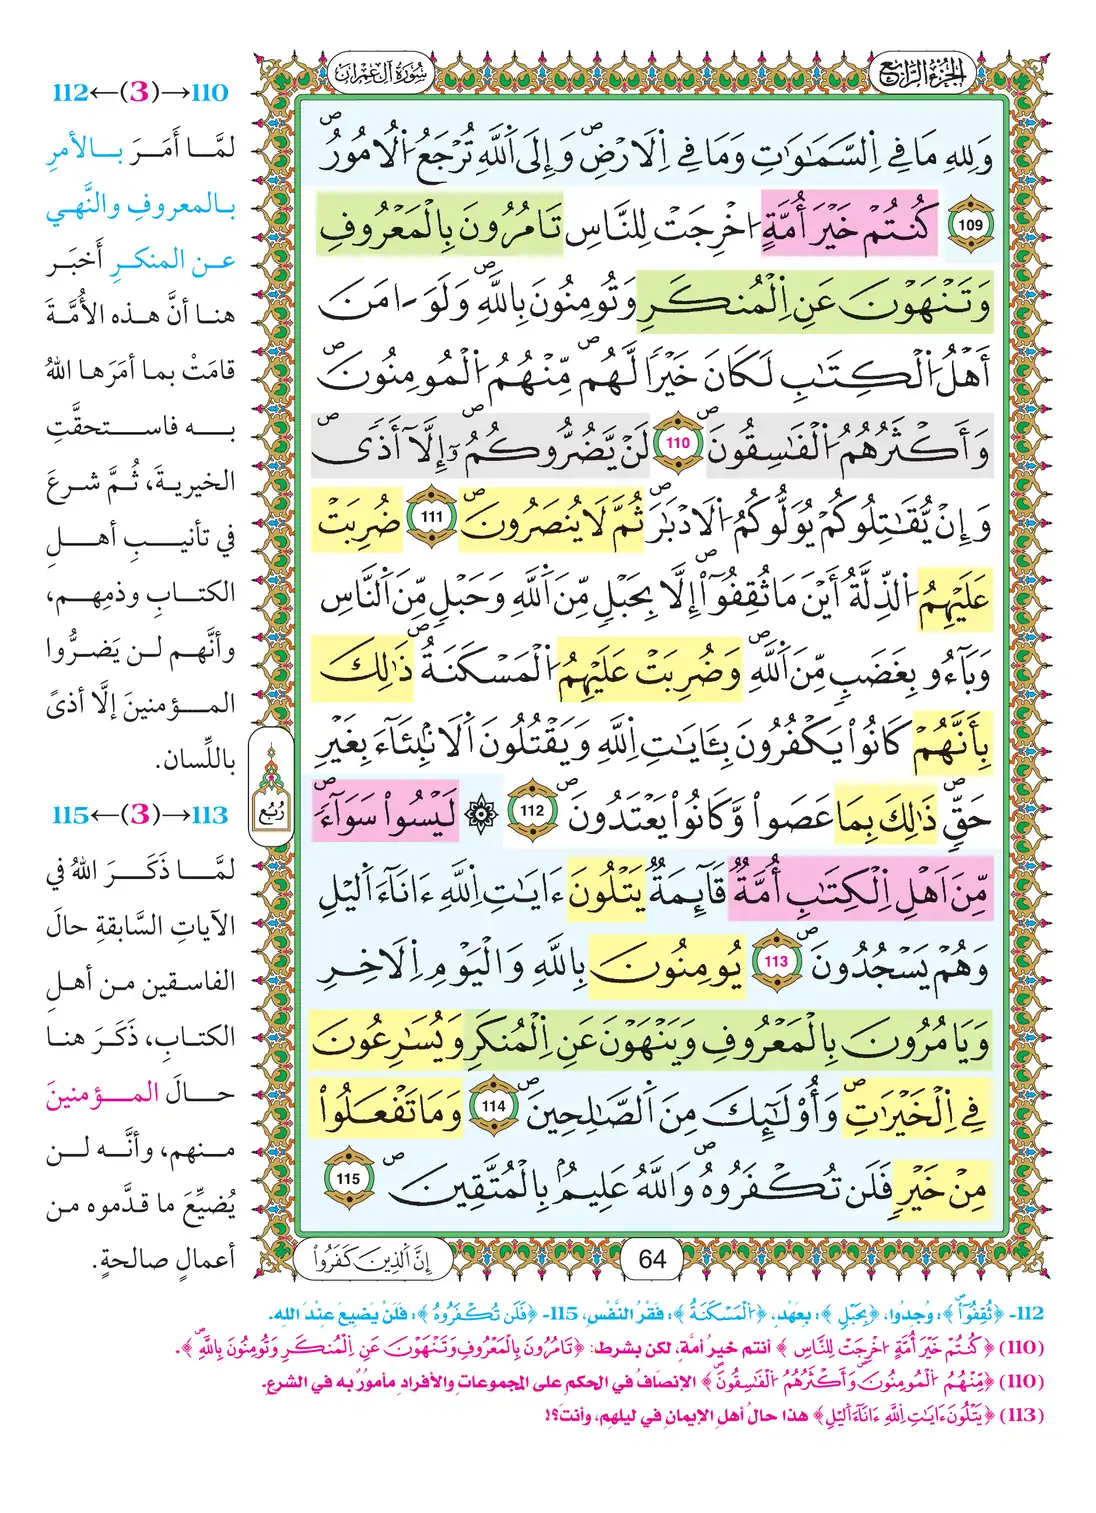 الجزء الرابع
سورة آل عمران
وَلِلهِ مَا فِے اِ۬لسَّمَٰوَٰتِ وَمَا فِے اِ۬لَارْضِۖ وَإِلَى اَ۬للَّهِ تُرْجَعُ اُ۬لُامُورُۖ
109 كُنتُمْ خَيْرَ أُمَّةٍ ا۟خْرِجَتْ لِلنَّاسِ تَامُرُونَ بِالْمَعْرُوفِ
وَتَنْهَوْنَ عَنِ اِ۬لْمُنكَرِ وَتُومِنُونَ بِاللَّهِۖ وَلَوَ اٰمَنَ
أَهْلُ اُ۬لْكِتَٰبِ لَكَانَ خَيْراٗ لَّهُمۖ مِّنْهُمُ اُ۬لْمُومِنُونَۖ
وَأَكْثَرُهُمُ اُ۬لْفَٰسِقُونَۖ 110 لَنْ يَّضُرُّوكُمُۥٓ إِلَّآ أَذٗىۖ
وَإِنْ يُّقَٰتِلُوكُمْ يُوَلُّوكُمُ اُ۬لَادْبَٰرَۖ ثُمَّ لَا يُنصَرُونَۖ 111 ضُرِبَتْ
عَلَيْهِمُ اُ۬لذِّلَّةُ أَيْنَ مَا ثُقِفُوٓاْۖ إِلَّا بِحَبْلٖ مِّنَ اَ۬للَّهِ وَحَبْلٖ مِّنَ اَ۬لنَّاسِۖ
وَبَآءُو بِغَضَبٖ مِّنَ اَ۬للَّهِۖ وَضُرِبَتْ عَلَيْهِمُ اُ۬لْمَسْكَنَةُۖ ذَٰلِكَ
بِأَنَّهُمْ كَانُواْ يَكْفُرُونَ بِـَٔايَٰتِ اِ۬للَّهِ وَيَقْتُلُونَ اَ۬لَانۢبِـَٔآءَ بِغَيْرِ
حَقّٖۖ ذَٰلِكَ بِمَا عَصَواْ وَّكَانُواْ يَعْتَدُونَۖ 112 ۞ لَيْسُواْ سَوَآءٗۖ
مِّنَ اَهْلِ اِ۬لْكِتَٰبِ أُمَّةٞ قَآئِمَةٞ يَتْلُونَ ءَايَٰتِ اِ۬للَّهِ ءَانَآءَ اَ۬ليْلِ
وَهُمْ يَسْجُدُونَۖ 113 يُومِنُونَ بِاللَّهِ وَالْيَوْمِ اِ۬لَاخِرِ
وَيَامُرُونَ بِالْمَعْرُوفِ وَيَنْهَوْنَ عَنِ اِ۬لْمُنكَرِ وَيُسَٰرِعُونَ
فِے اِ۬لْخَيْرَٰتِۖ وَأُوْلَٰٓئِكَ مِنَ اَ۬لصَّٰلِحِينَۖ 114 وَمَا تَفْعَلُواْ
مِنْ خَيْرٖ فَلَن تُكْفَرُوهُۖ وَاللَّهُ عَلِيمُۢ بِالْمُتَّقِينَۖ 115
إِنَّ اَ۬لذِينَ كَفَرُواْ
64
رُبُع
110→(3)←112
لمَّا أَمَرَ بالأمرِ
بالمعروفِ والنَّهي
عن المنكرِ أخبَر
هنا أنَّ هذه الأُمَّةَ
قامَتْ بما أمَرَها اللهُ
به فاستحقَّتِ
الخيريةَ، ثُمَّ شرعَ
في تأنيبِ أهلِ
الكتابِ وذمِهم،
وأنَّهم لن يَضرُّوا
المؤمنينَ إلَّا أذىً
باللِّسان.
113→(3)←115
لمَّا ذَكَرَ اللهُ في
الآياتِ السَّابقةِ حالَ
الفاسقين من أهلِ
الكتابِ، ذَكَرَ هنا
حالَ المؤمنينَ
منهم، وأنَّه لن
يُضيِّعَ ما قدَّموه من
أعمالٍ صالحةٍ.
112- ﴿ثُقِفُوٓاْۖ﴾: وُجِدُوا، ﴿بِحَبْلٖ﴾: بعَهْدٍ، ﴿اُ۬لْمَسْكَنَةُ﴾: فَقْرُ النَّفْسِ، 115- ﴿فَلَن تُكْفَرُوهُ﴾: فَلَنْ يَضِيعَ عِنْدَ اللهِ.
(110) ﴿كُنتُمْ خَيْرَ أُمَّةٍ ا۟خْرِجَتْ لِلنَّاسِ﴾ أنتم خيرُ أمَّةٍ، لكن بشرط: ﴿تَامُرُونَ بِالْمَعْرُوفِ وَتَنْهَوْنَ عَنِ اِ۬لْمُنكَرِ وَتُومِنُونَ بِاللَّهِۖ﴾.
(110) ﴿مِّنْهُمُ اُ۬لْمُومِنُونَۖ وَأَكْثَرُهُمُ اُ۬لْفَٰسِقُونَۖ﴾ الإنصافُ في الحكمِ على المجموعاتِ والأفرادِ مأمورٌ به في الشرعِ.
(113) ﴿يَتْلُونَ ءَايَٰتِ اِ۬للَّهِ ءَانَآءَ اَ۬ليْلِ﴾ هذا حالُ أهلِ الإيمانِ في ليلِهم، وأنتَ؟!